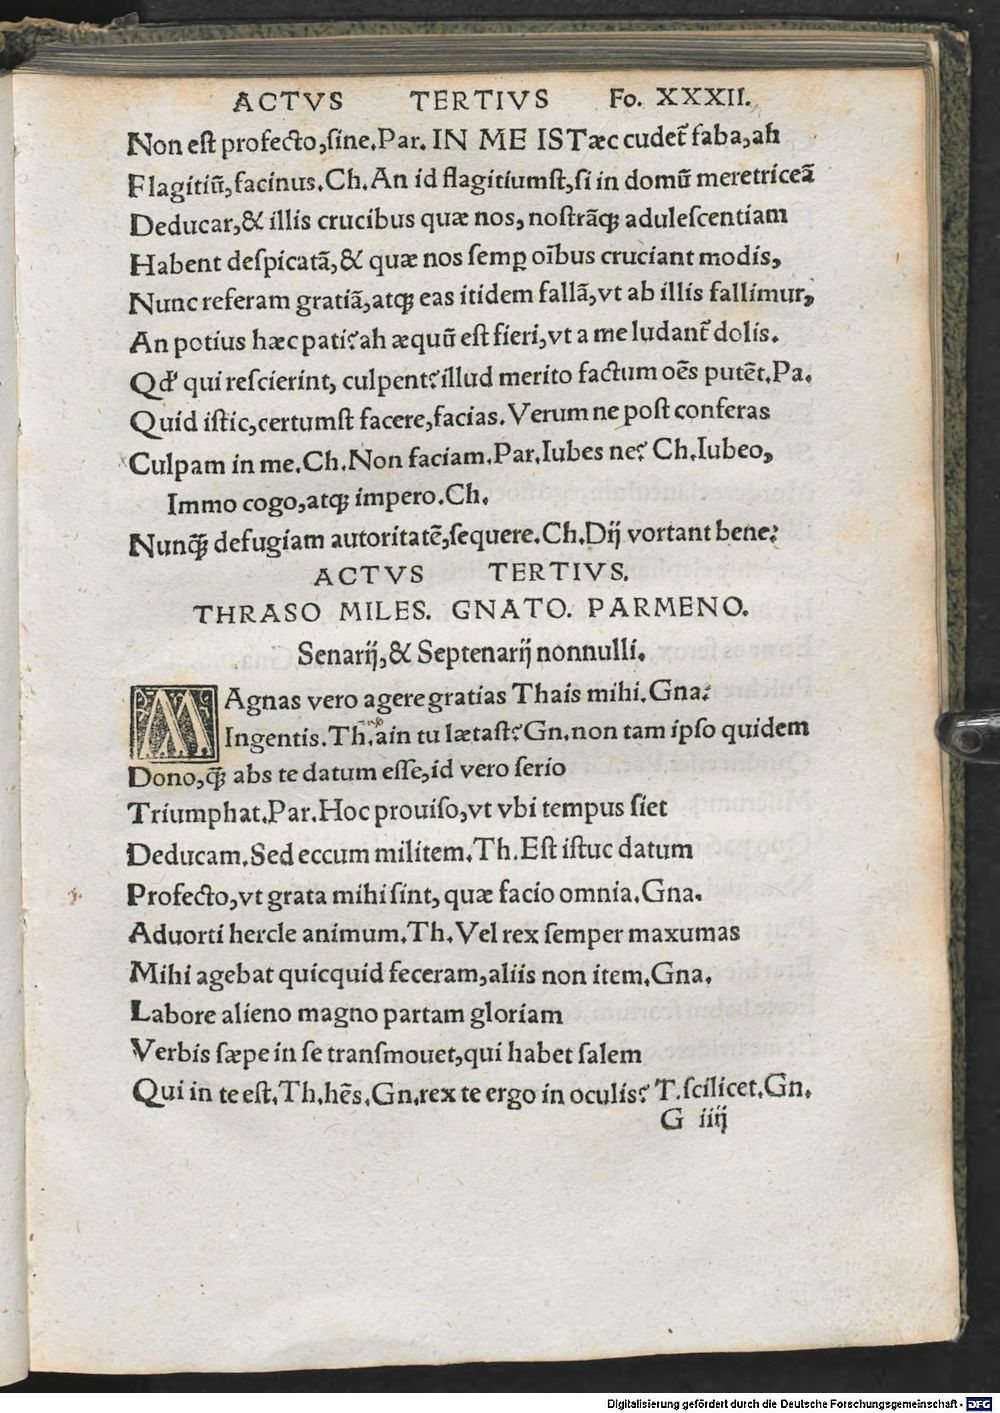 ACTVS TERTIVS Fo. XXXII.
Non eſt profecto,ſine.Par. IN ME ISTæc cudet᷑ faba,ah
Flagitiū,facinus.Ch.An id flagitiumſt,ſi in domū meretriceā
Deducar,& illis crucibus quæ nos, noſtrāqꝫ aduleſcentiam
Habent deſpicatā,& quæ nos ſemꝑ oībus cruciant modis,
Nunc referam gratiā,atqꝫ eas itidem fallā,vt ab illis fallimur,
An potius hæc pati?ah æquū eſt fieri,vt a me ludant᷑ dolis.
Qd' qui reſcierint, culpent?illud merito factum oēs putēt.Pa.
Quid iſtic,certumſt facere,facias.Verum ne poſt conferas
Culpam in me.Ch.Non faciam.Par.Iubes ne? Ch.Iubeo,
Immo cogo,atqꝫ impero.Ch.
Nunqꝫ̄ defugiam autoritatē,ſequere.Ch.Dij vortant bene:
ACTVS TERTIVS.
THRASO MILES. GNATO. PARMENO.
Senarij,& Septenarij nonnulli.
MAgnas vero agere gratias Thais mihi.Gna:
Ingentis.Th.ain tu lætaſt?Gn.non tam ipſo quidem
Dono,qꝫ̄ abs te datum eſſe,id vero ſerio
Triumphat.Par.Hoc prouiſo,vt vbi tempus ſiet
Deducam.Sed eccum militem.Th.Eſt iſtuc datum
Profecto,vt grata mihi ſint, quæ facio omnia.Gna.
Aduorti hercle animum.Th.Vel rex ſemper maxumas
Mihi agebat quicquid feceram,aliis non item.Gna.
Labore alieno magno partam gloriam
Verbis ſæpe in ſe tranſmouet,qui habet ſalem
Qui in te eſt.Th.hēs.Gn.rex te ergo in oculis? T.ſcilicet.Gn.
G iiij
Digitalisierung gefördert durch die Deutsche Forschungsgemeinschaft - DFG